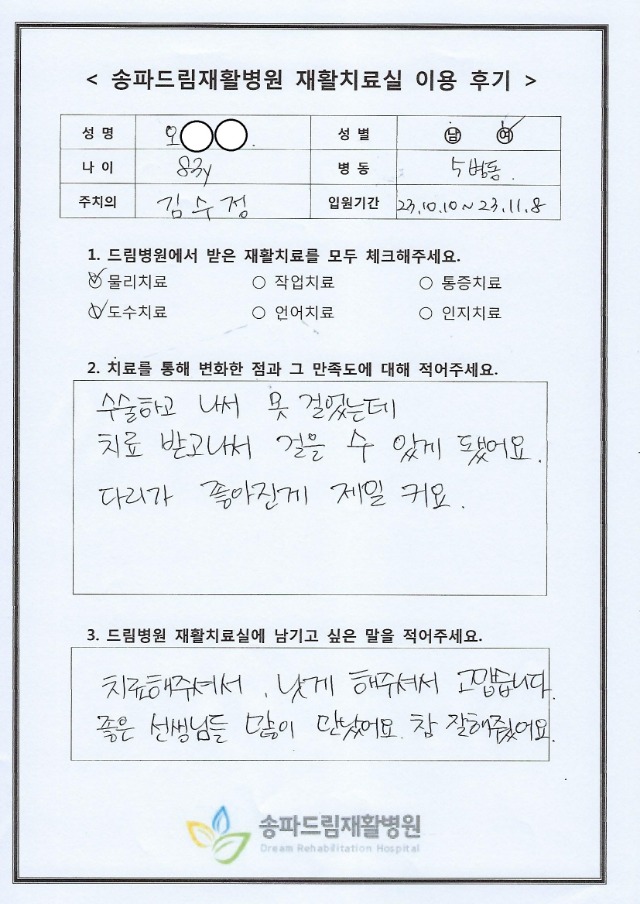 < 송파드림재활병원 재활치료실 이용 후기 >
성 명 오○○. 성 별 남 여
나 이 83y 병 동 5병동.
주치의 김수정 입원기간 23.10.10~23.11.8
1. 드림병원에서 받은 재활치료를 모두 체크해주세요.
물리치료 ○ 작업치료 ○ 통증치료
도수치료 ○ 언어치료 ○ 인지치료
2. 치료를 통해 변화한 점과 그 만족도에 대해 적어주세요.
수술하고 나서 못 걸었는데
치료 받고나서 걸을 수 있게 됐어요.
다리가 좋아진게 제일 커요.
3. 드림병원 재활치료실에 남기고 싶은 말을 적어주세요.
치료해주셔서, 낫게 해주셔서 고맙습니다.
좋은 선생님들 많이 만났어요. 참 잘해줬어요.
송파드림재활병원
Dream Rehabilitation Hospital